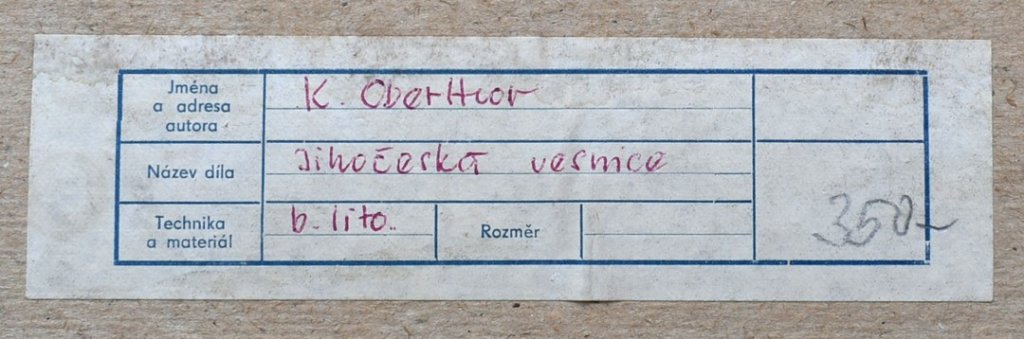 Jména
a adresa
autora
K. Oberthor
Název díla
Jihočeská vesnice
Technika
a materiál
b. lito.
Rozměr
350,-